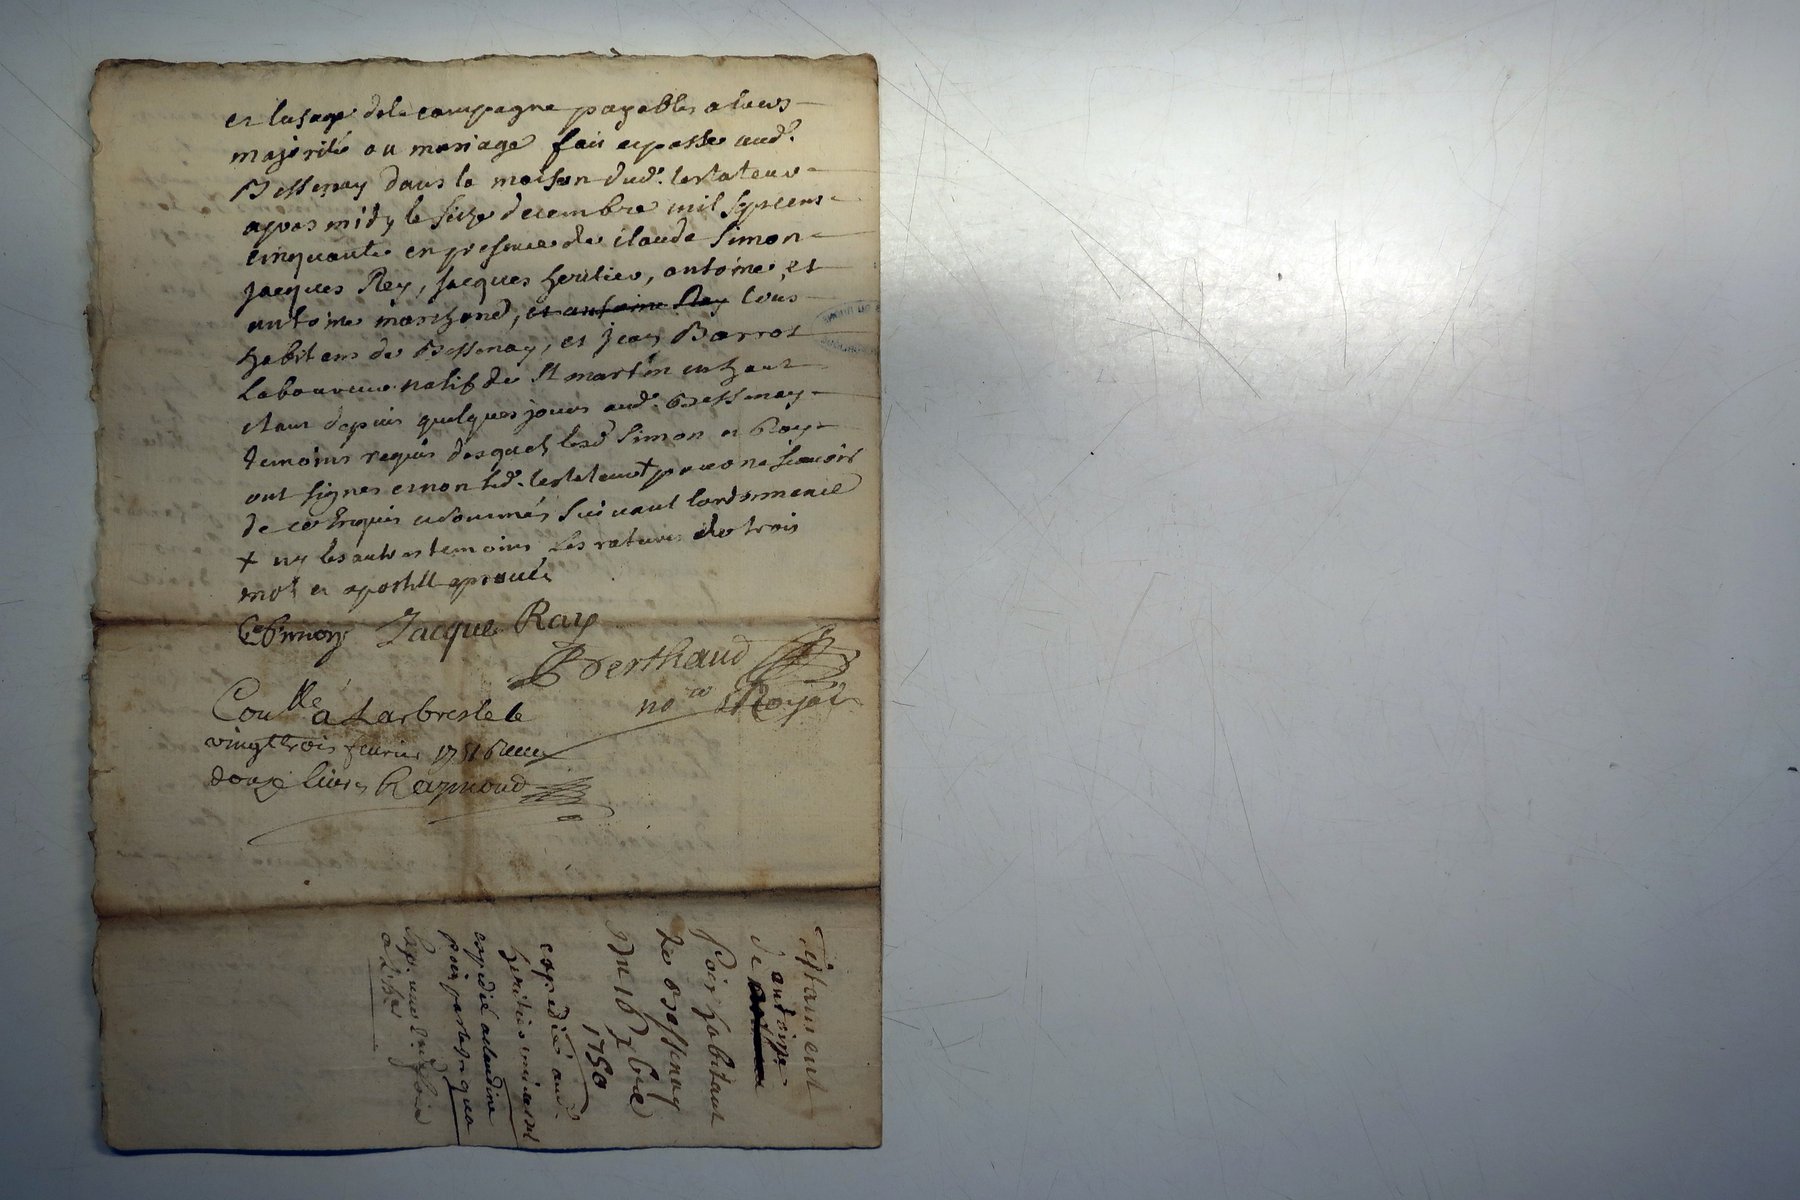 et lusage dela campagne payables a leurs
majorité ou mariage fait et passé aud.
Bessenay dans la maison dud. testateur
apres midy le seize decembre mil sept cens
cinquante en presence de claude Simon
Jacques Rey, Jacques heritier, antoine, et
antoine marchand, et antoine Rey tous
habitans de Bessenay, et jean Barrot
laboureur natif de St martin en haut
etant depuis quelques jours aud. Bessenay
temoins requis desquels lesd Simon et Rey
ont signes et non led. testateur + pour ne scavoir
de ce enquis et sommés suivant lordonnance
+ ny les autres temoins les ratures de trois
mots et apostille aprouvés
Jacque Ray
Berthaud
no.re Royal
Con.lle à Larbresle le
vingt trois fevrier 1751 Receu
douze livres Raymond
Testament
antoine
de
Poix habitant
de Bessenay
Du 16 xbre
1750
expédié aud.
heritier universel
expedié a claudine
poix